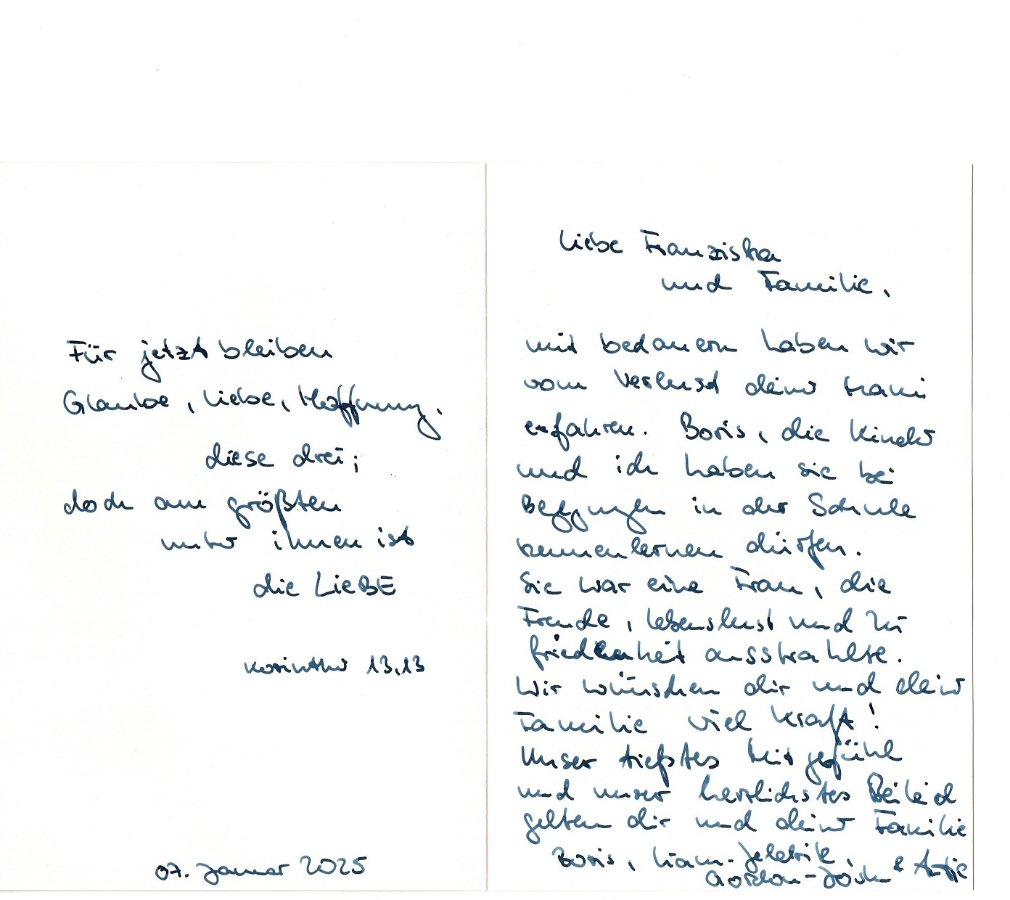 Für jetzt bleiben
Glaube, Liebe, Hoffnung,
diese drei;
doch am größten
unter ihnen ist
die LIEBE
Korinther 13,13
07. Januar 2025
Liebe Franziska
und Familie,
mit bedauern haben wir
vom Verlust deiner Mami
erfahren. Boris, die Kinder
und ich haben sie bei
in der Schule
kennenlernen dürfen.
Sie war eine Frau, die
Freude, Lebenslust und Zu
friedenheit ausstrahlte.
Wir wünschen dir und deiner
Familie viel Kraft!
Unser tiefstes Mitgefühl
und unser herzlichstes Beileid
gelten dir und deiner Familie
Boris, Liam-
& Antje